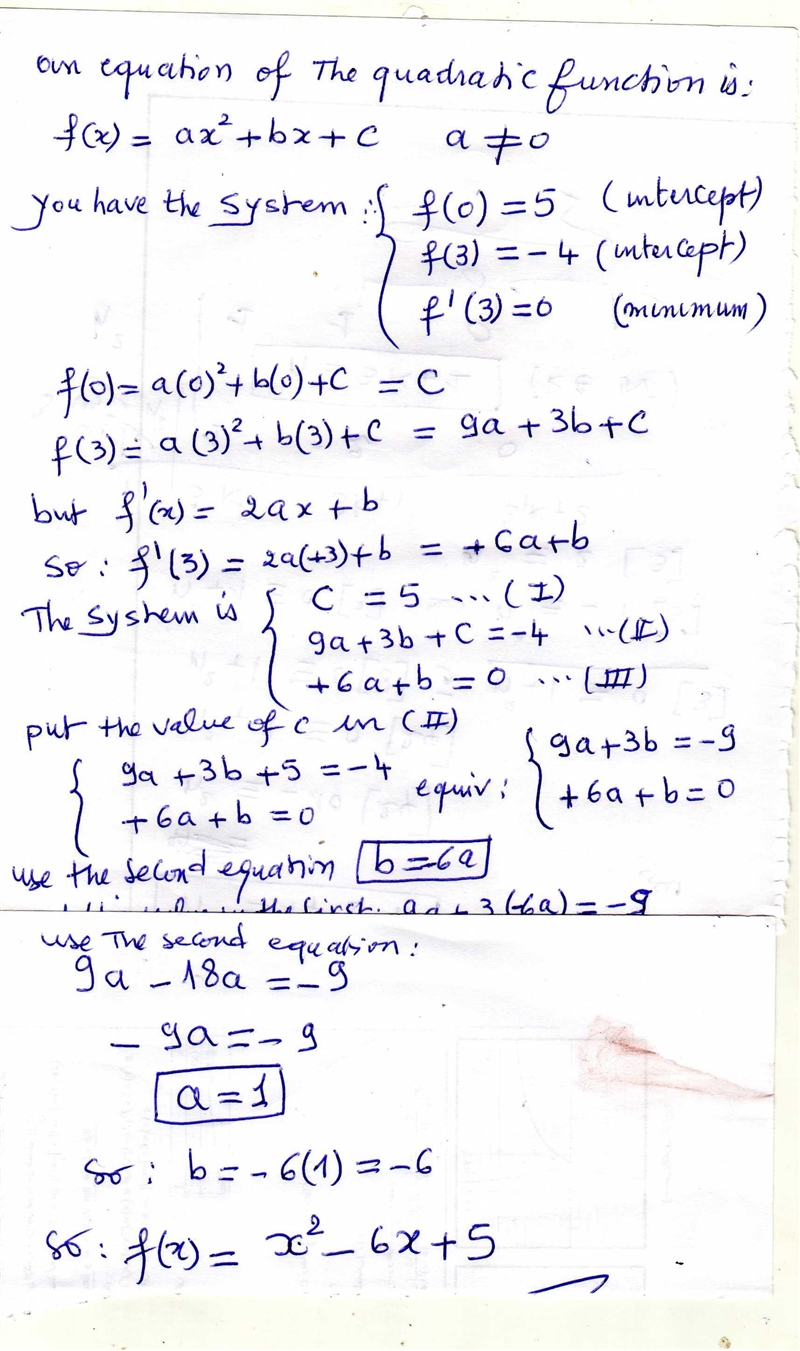 an equation of The quadratic function is:
f(x) = ax² + bx + c a ≠ 0
you have the system : { f(0) = 5 (intercept)
f(3) = -4 (intercept)
f'(3) = 0 (minimum)
f(0) = a(0)² + b(0) + c = c
f(3) = a(3)² + b(3) + c = 9a + 3b + c
but f'(x) = 2ax + b
so : f'(3) = 2a(+3) + b = +6a + b
The system is { c = 5 ... (I)
9a + 3b + c = -4 ... (II)
+6a + b = 0 ... (III)
put the value of c in (II)
{ 9a + 3b + 5 = -4
+6a + b = 0
equiv : { 9a + 3b = -9
+6a + b = 0
use the second equation b = -6a
in the first. 9a + 3(-6a) = -9
use The second equation :
9a - 18a = -9
- 9a = - 9
a = 1
so : b = - 6(1) = -6
so : f(x) = x² - 6x + 5